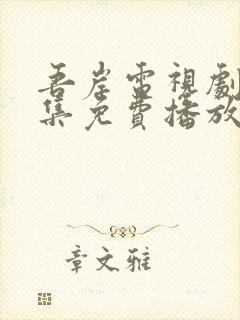 吾岸電視劇
集免費播放
章文雅